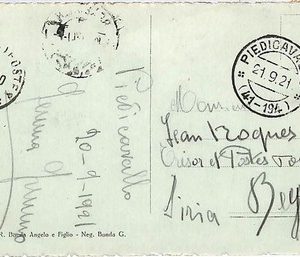 PIEDICAVAL
21.9.21
(41-194)
Piedicavallo
20-9-1921
Monsieur
Jean Roques
Trésor et Postes
Siria Bey
R. Bonda Angelo e Figlio - Neg. Bonda G.